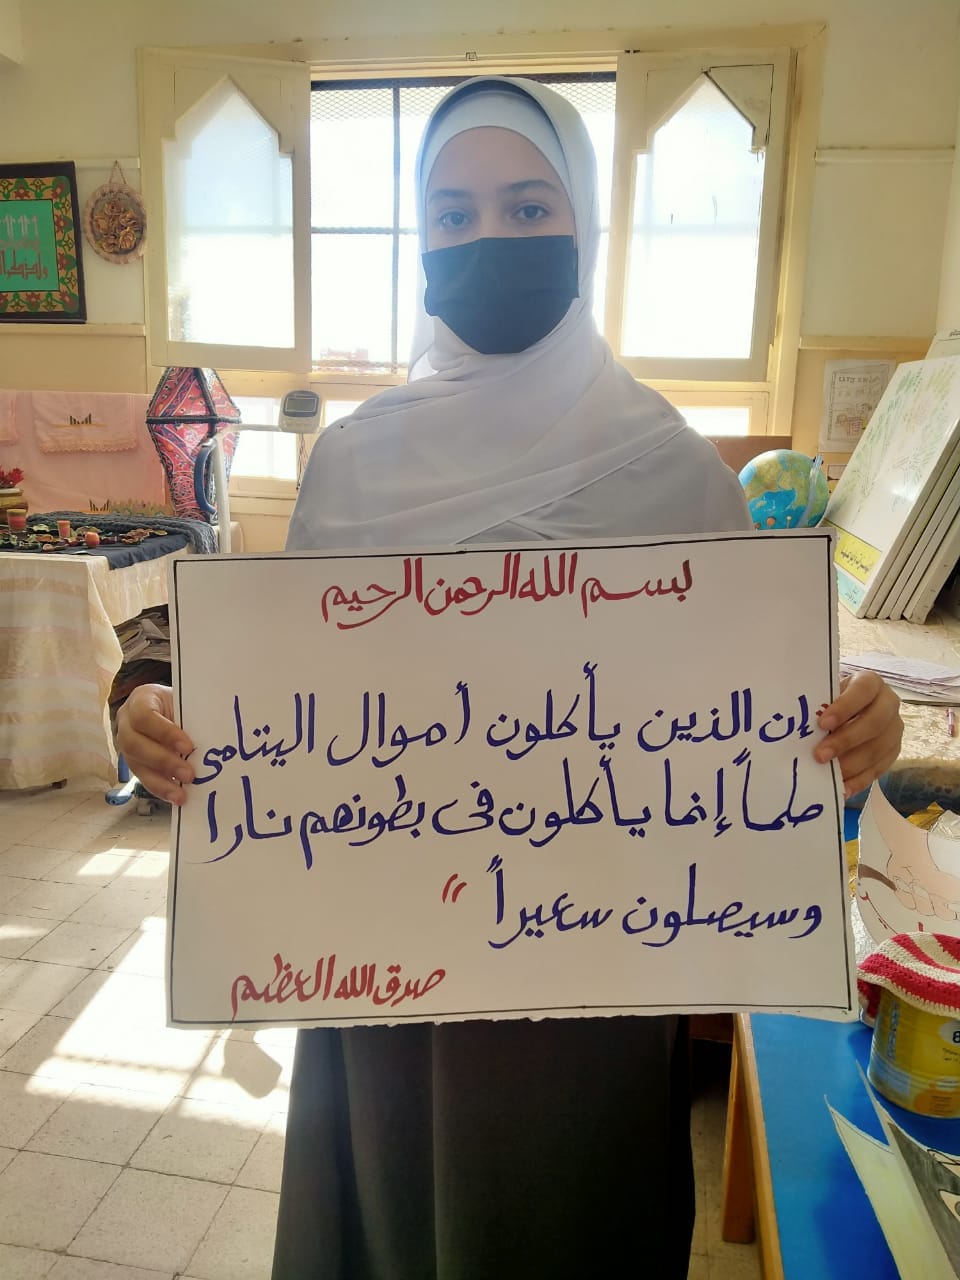 بسم الله الرحمن الرحيم
إن الذين يأكلون أموال اليتامى
ظلماً إنما يأكلون فى بطونهم نارا
وسيصلون سعيراً "
صدق الله العظيم